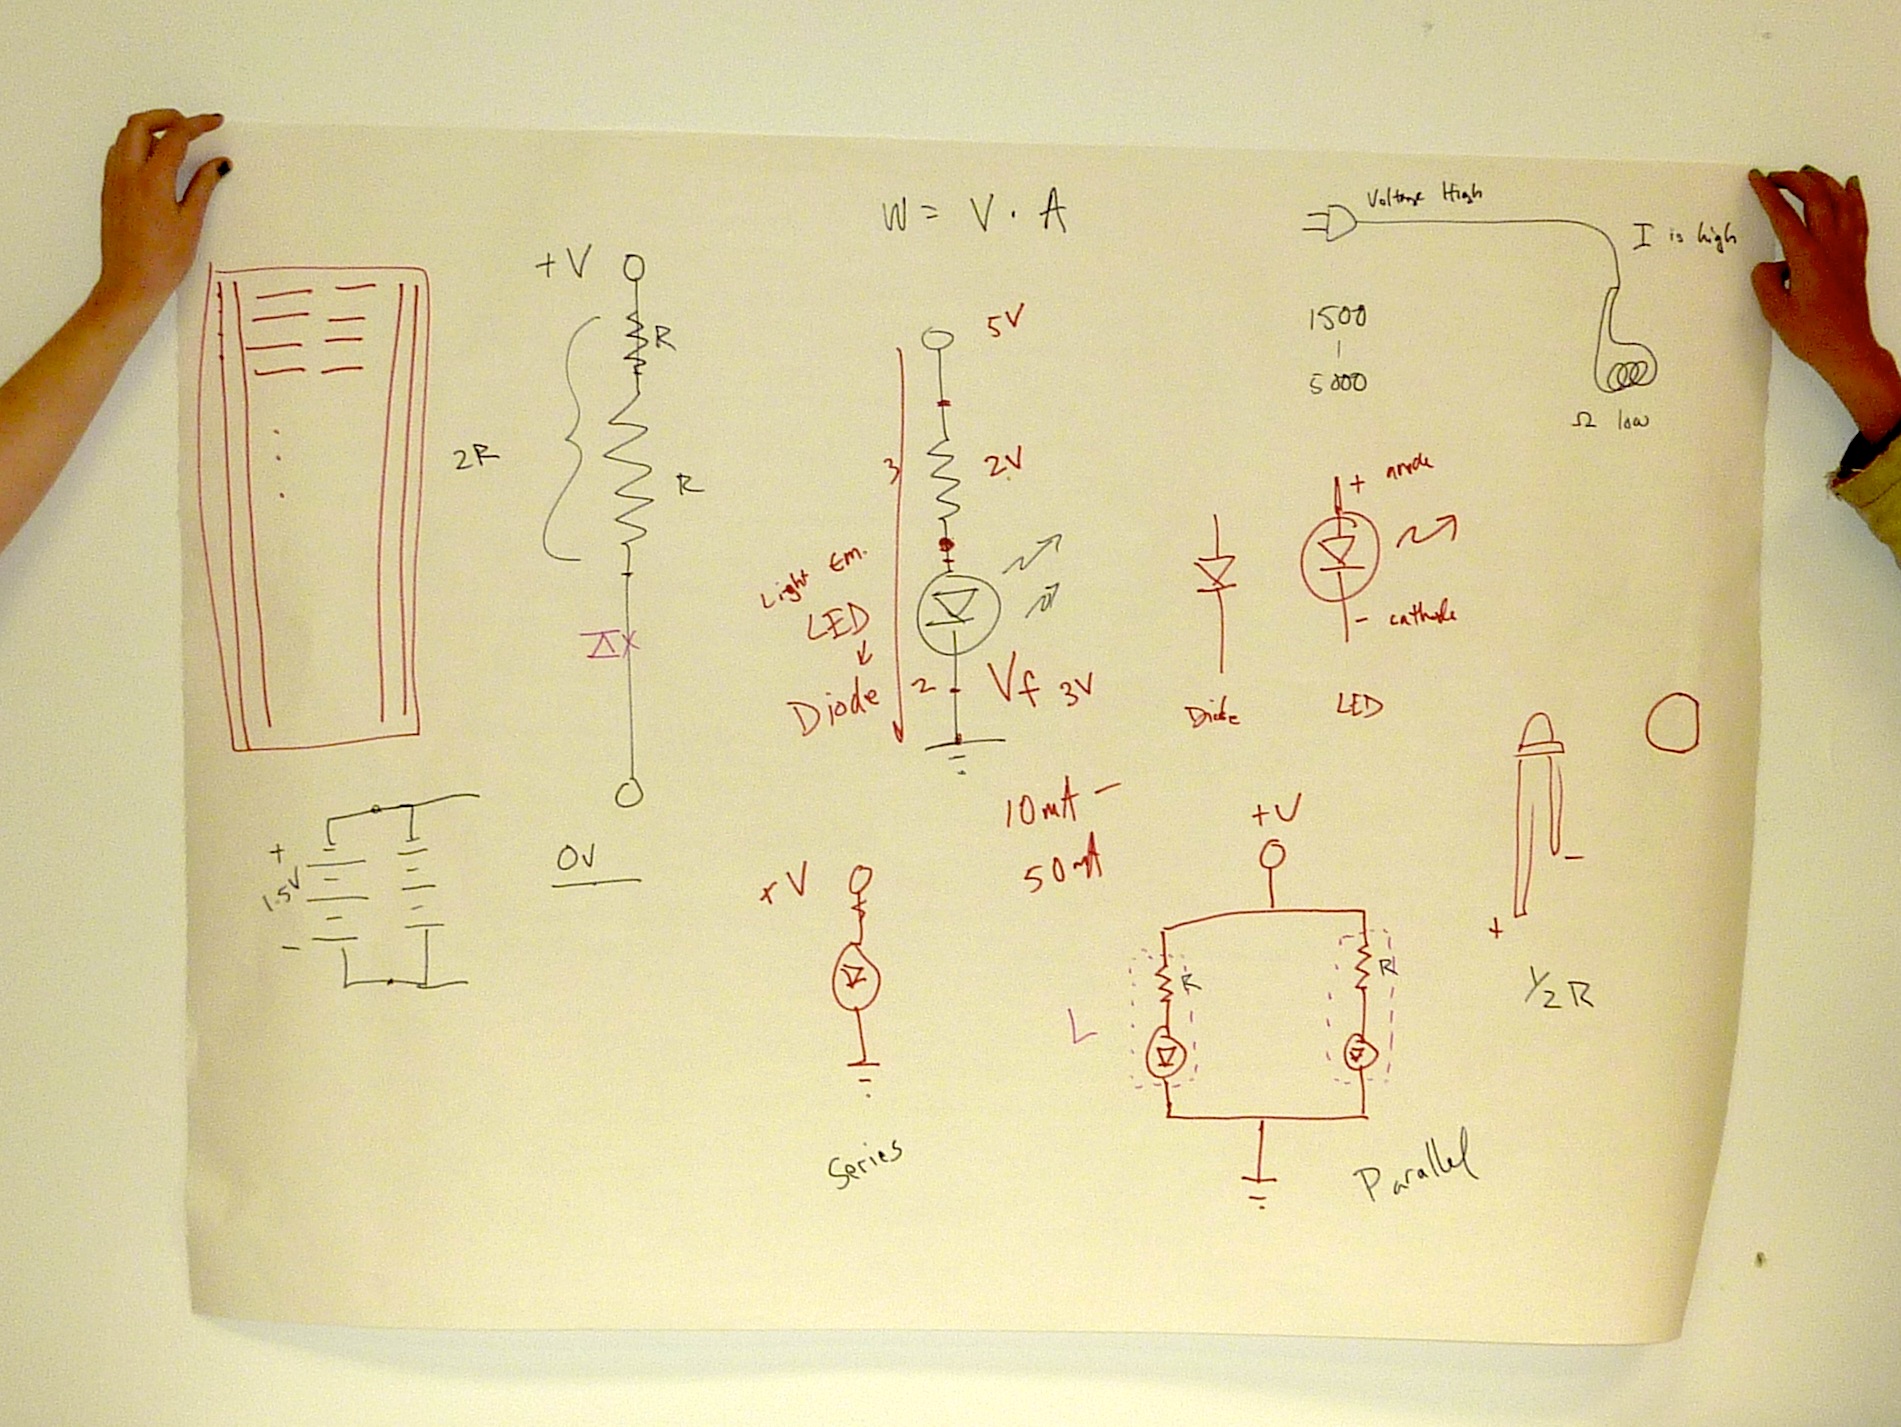 W = V . A
Voltage High
I is high
1500
5000
Ω low
+V
R
2R
R
0V
+
1.5V
-
5V
3
2V
Light Em.
LED
Diode
2
Vf 3V
10mA -
50mA
+ anode
- cathode
Diode
LED
+V
Series
+V
R
R
L
Parallel
-
+
1/2 R